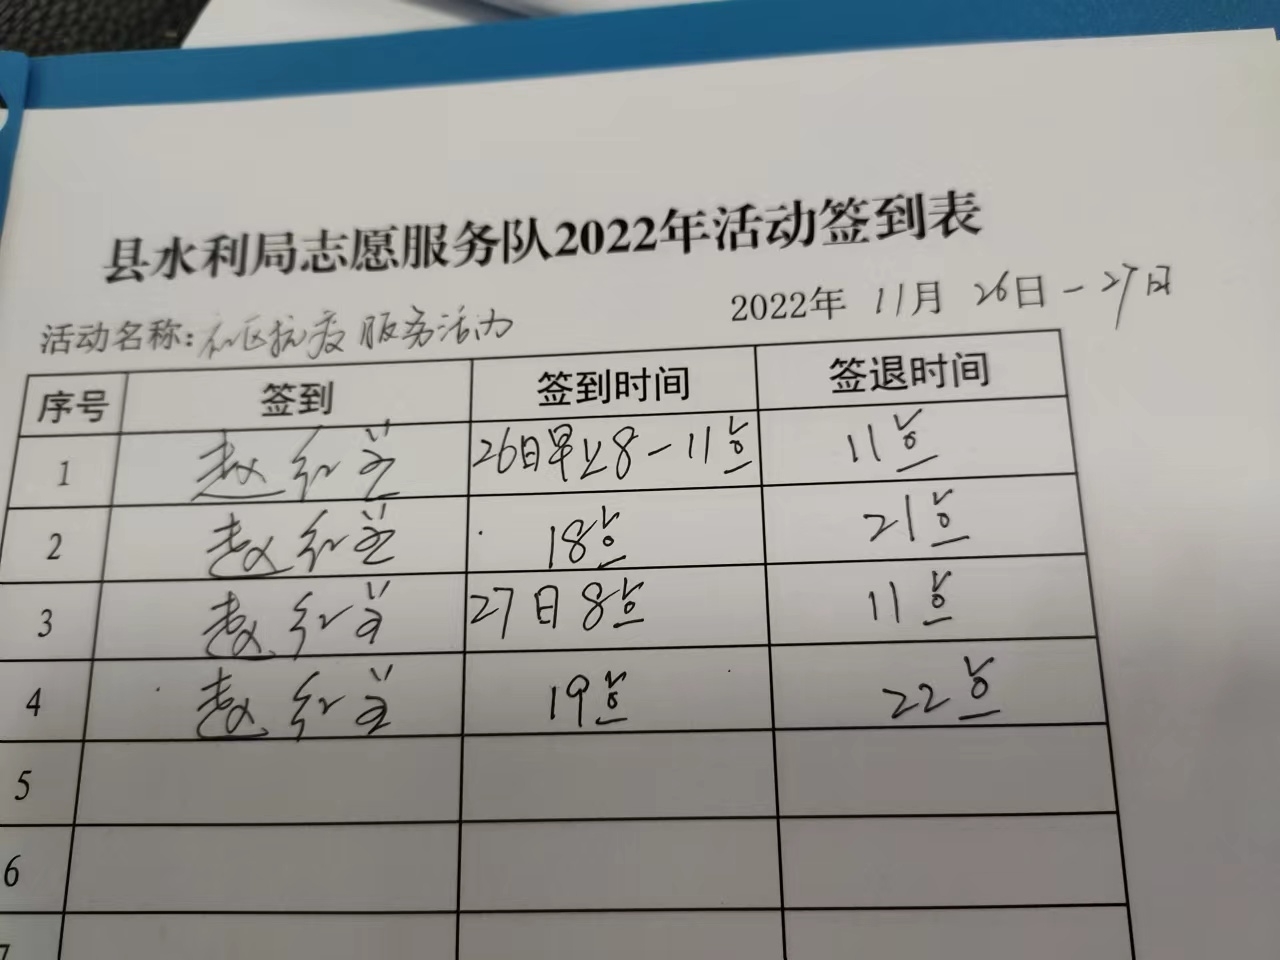 县水利局志愿服务队2022年活动签到表
2022年 11月 26日-27日
活动名称:社区抗疫服务活动
序号 签到 签到时间 签退时间
1 赵红 26日早上8-11点 11点
2 赵红 18点 21点
3 赵红 27日8点 11点
4 赵红 19点 22点
5
6
7